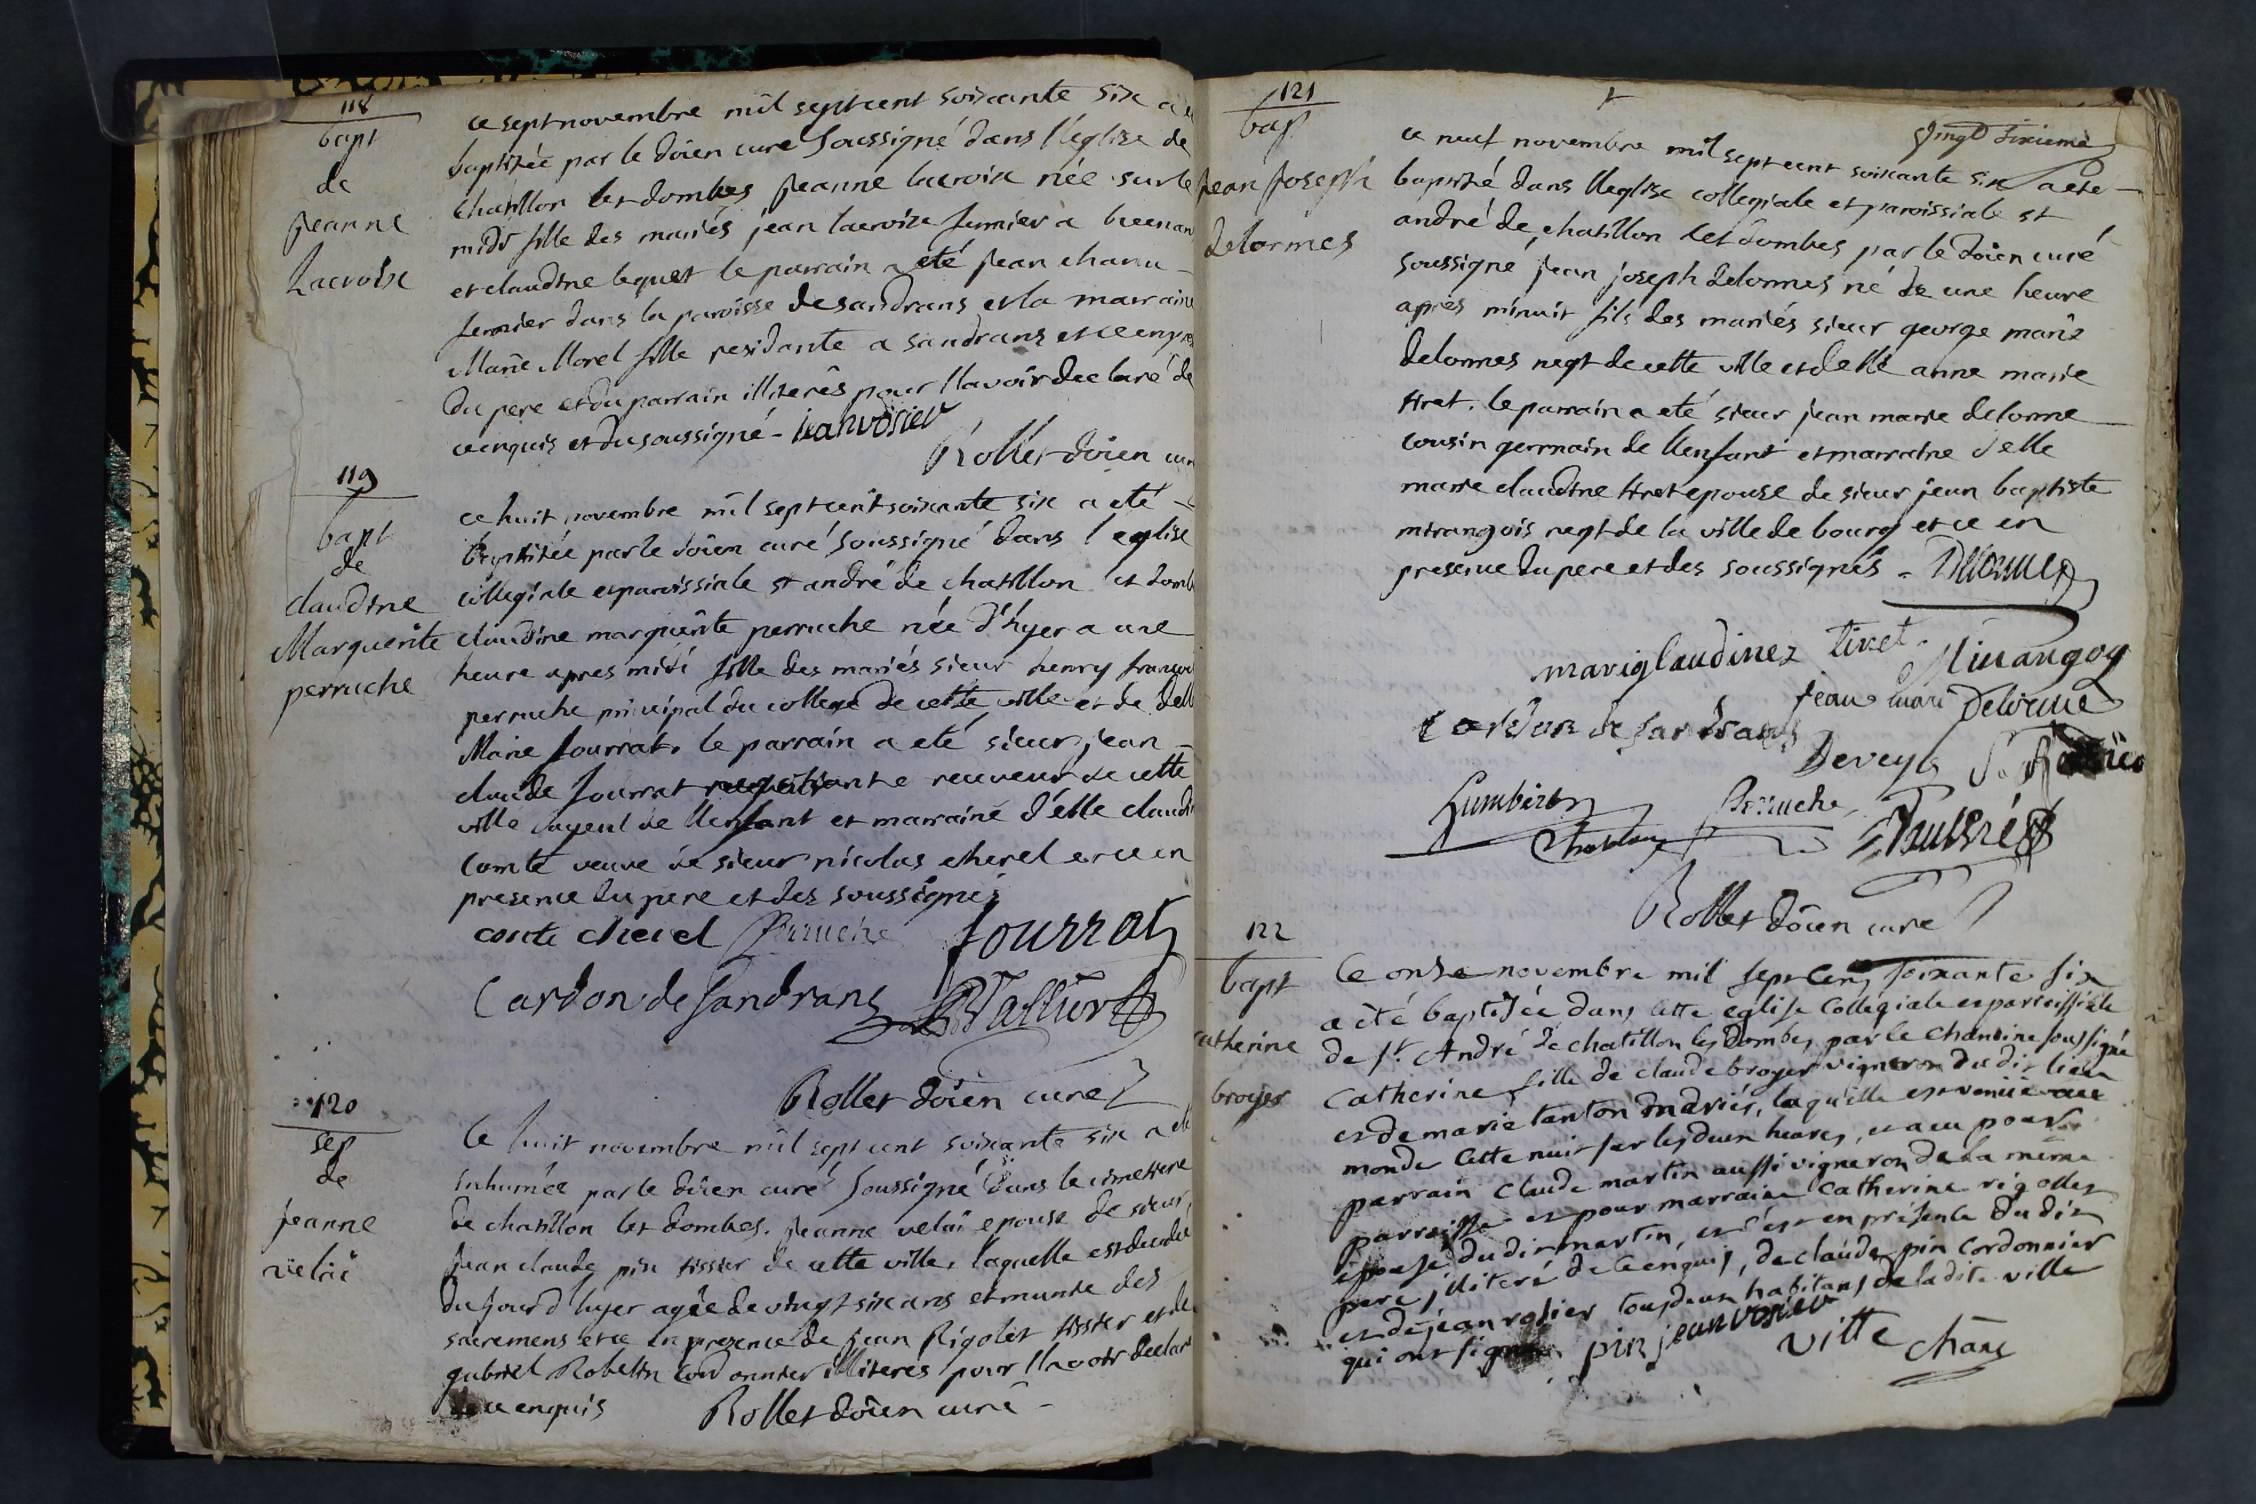 118
bapt
de
jeanne
Lacroise
ce sept novembre mil sept cent soixante six a
baptisée par le doïen curé soussigné dans l'eglise de
chatillon les dombes jeanne lacroix née sur le
midi fille des mariés jean lacroise fermier a
et claudine lequet le parrain a eté jean chanu
fermier dans la paroisse de sandrans et la marraine
Marie Morel fille residante a sandrans et ce en
du pere et du parrain illiterés pour l'lavoir declaré de
ce enquis et du soussigné - jean vosier
Rollet doïen
119
bapt
de
claudine
Marguerite
perruche
ce huit novembre mil sept cent soixante six a eté
baptisée par le doïen curé soussigné dans l'eglise
collegiale et paroissiale st andré de chatillon les
claudine marguerite perruche née d'hyer a une
heure apres midi fille des mariés sieur henry
perruche principal du college de cette ville et de
Marie fourrat. le parrain a eté sieur jean
claude fourrat receveur de cette
ville ayeul de l'lenfant et marraine d'elle
comte veuve de sieur nicolas cherel et ce en
presence du pere et des soussignés
comte cherel Perruche fourrat
Cardon de sandrans
Rollet doïen curé
120
sep
de
jeanne
velaï
Ce huit novembre mil sept cent soixante six a
inhumée par le doïen curé soussigné dans le cimetiere
de chatillon les dombes. jeanne velaï epouse de sieur
jean claude pin tissier de cette ville, laquelle est decedée
du jour d'hyer agée de vingt six ans et munie des
sacremens et ce en presence de jean Rigolet tissier et de
gabriel Robelin cordonnier illiterés pour l'lavoir
de ce enquis Rollet doïen curé -
121
bap
jean joseph
delormes
vingt sixieme
ce neuf novembre mil sept cent soixante six a eté
baptisé dans l'leglise collegiale et paroissiale st
andré de chatillon les dombes par le doïen curé
soussigné jean joseph delormes né de une heure
aprés minuit fils des mariés sieur george marie
delormes negt de cette ville et delle anne marie
tiret. le parrain a eté sieur jean marie delorme
cousin germain de l'lenfant et marraine d'elle
marie claudine tiret epouse de sieur jean baptiste
mirangois negt de la ville de bourg et ce en
presence du pere et des soussignés - Delormes
marig laudinez tiret
jean mari Delorme
cardon de sandrans
Deveyle
Perruche
Rollet doïen curé
122
bapt
catherine
broyer
Ce onze novembre mil sept cens soixante six
a été baptisée dans cette eglise Collegiale et paroissiale
de St. André de chatillon les Dombes par le chanoine soussigné
catherine fille de claude broyer vigneron du dit lieu
et de marie tanton mariés, laquelle est venüe au
monde cette nuit sur les deux heures, et a eu pour
parrain claude martin aussi vigneron de la même
parroisse et pour marraine catherine rigollet
épouse du dit martin, et c'est en présente du dit
pere illiteré de ce enquis, de claude pin cordonnier
et de jean vosier tous deux habitans de la dite ville
qui ont signé. pin jean vosier
ville chane